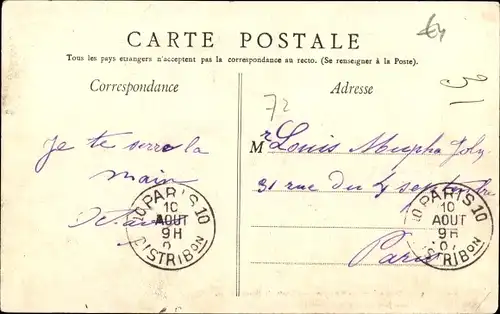 CARTE POSTALE
Tous les pays étrangers n'acceptent pas la correspondance au recto. (Se renseigner à la Poste).
Correspondance
Je te serre la
main
Adresse
72
Mr Louis
31 rue du 4 septembre
Paris
PARIS 10
10
AOUT
9H
DISTRIBON
10 PARIS 10
10
AOUT
9H
07
DISTRIBON